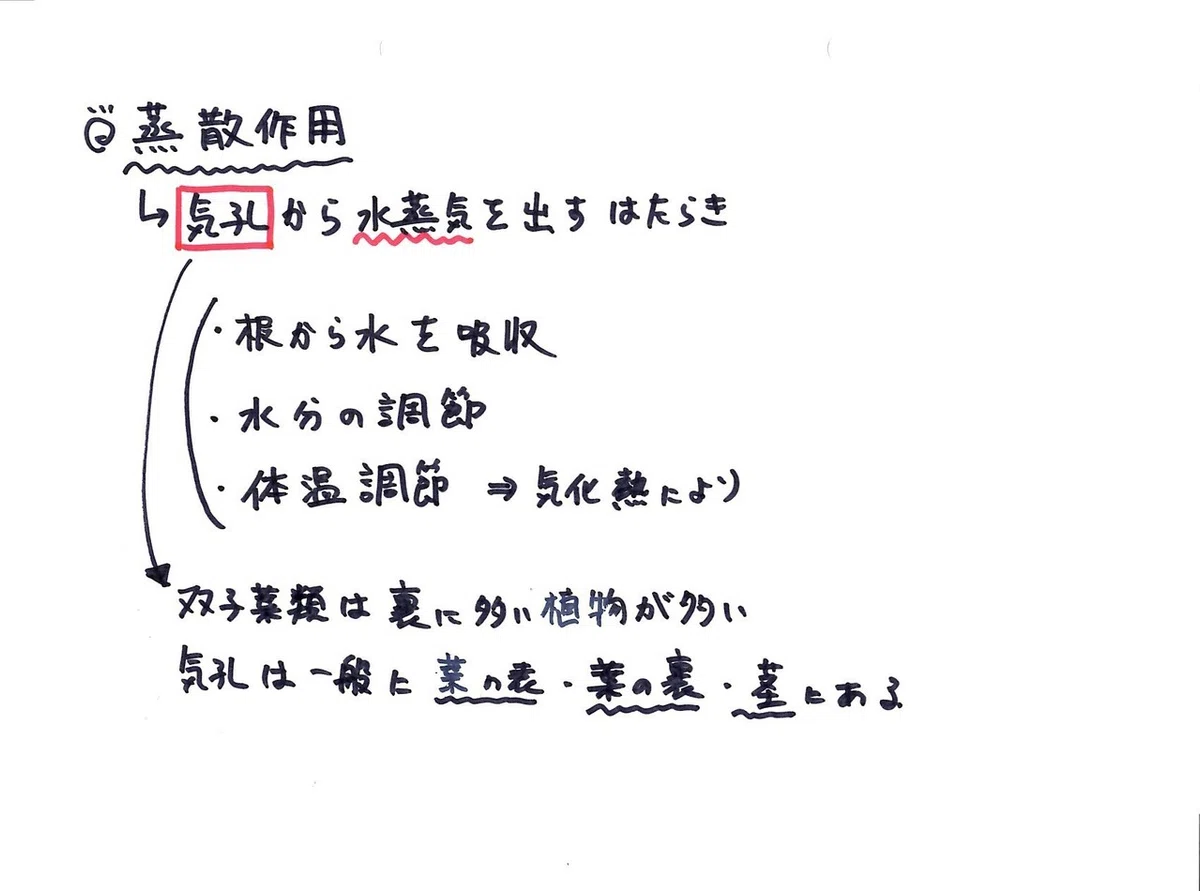 蒸散作用
↳ 気孔から水蒸気を出すはたらき
・根から水を吸収
・水分の調節
・体温調節 ⇒ 気化熱により
双子葉類は裏に多い植物が多い
気孔は一般に葉の表・葉の裏・茎にある